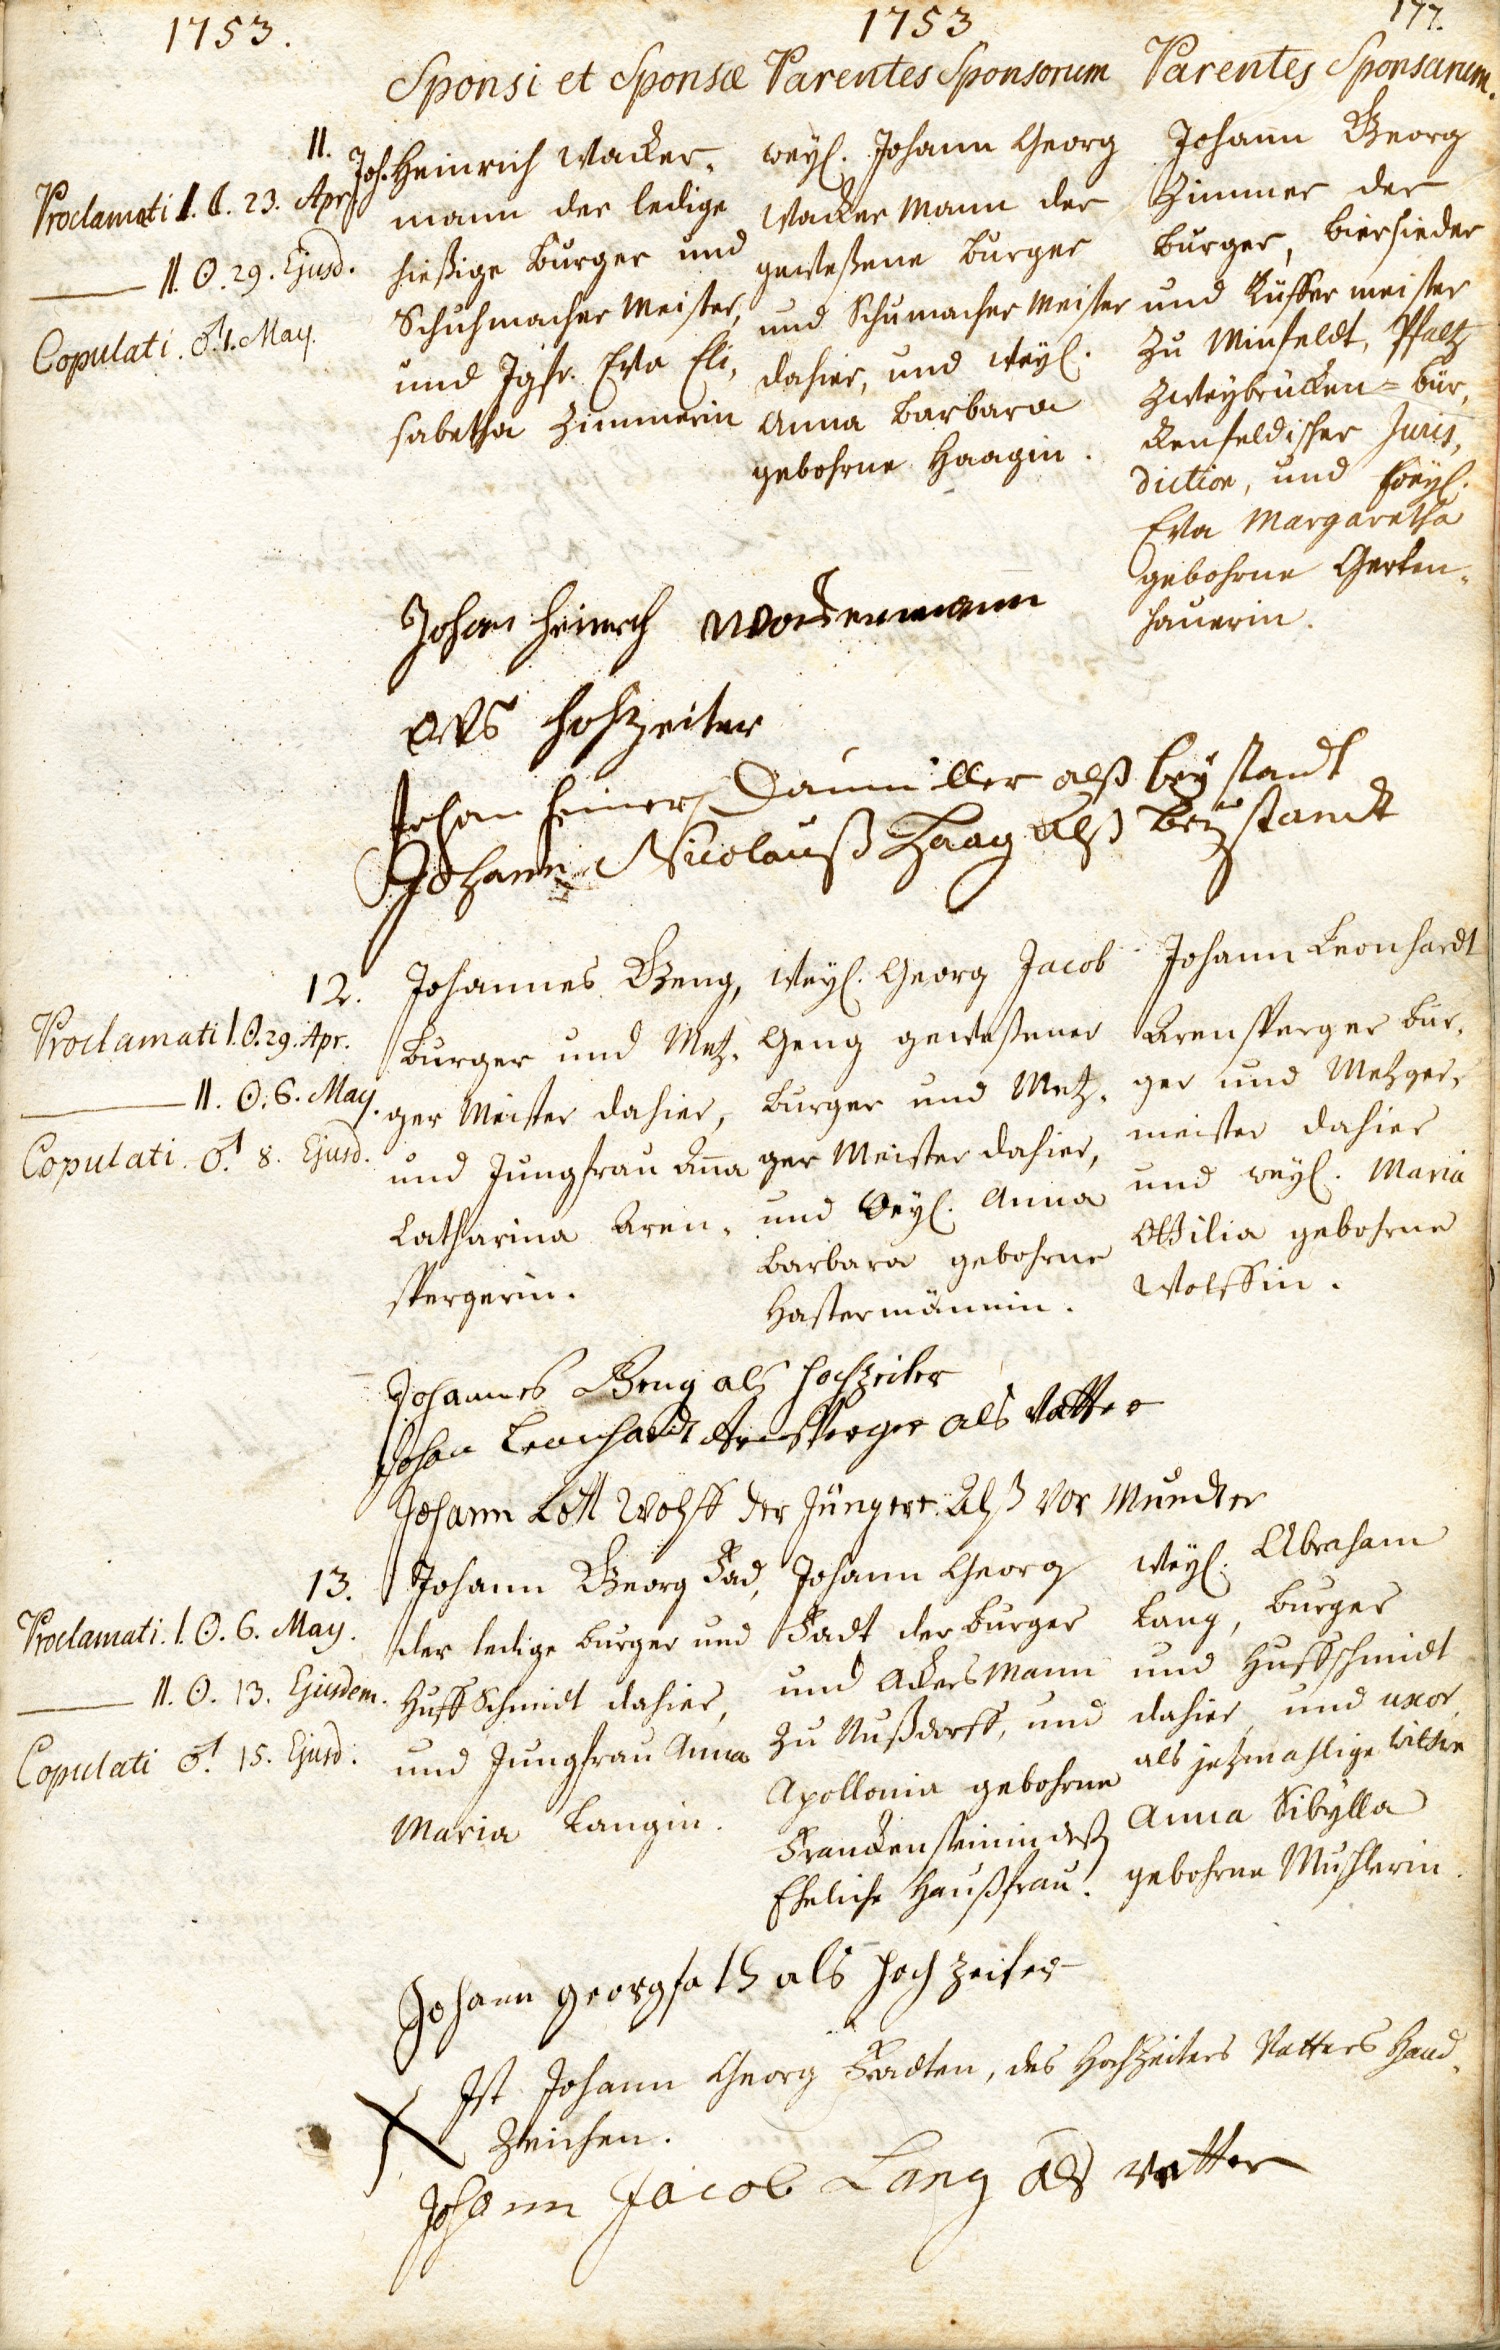 1753.
1753
177.
Sponsi et Sponsæ
Parentes Sponsorum
Parentes Sponsarum.
11.
Proclamati I. 23. Apr.
II. ⊙. 29. Ejusd.
Copulati. ♂ 1. May.
Joh. Heinrich Wacker-
mann der ledige
hießige Burger und
Schuhmacher Meister,
und Jgfr. Eva Eli,
sabetha Zimmerin
weyl. Johann Georg
Wacker Mann der
geweßene Burger
und Schumacher Meister
dahier, und weyl.
Anna Barbara
gebohrne Haagin.
Johann Georg
Zimmer der
Burger, Biersieder
und Küffer meister
zu Minfeldt, Pfaltz
Zweybrücken = Bür,
ckenfeldischer Juris,
diction, und weyl.
Eva Margaretha
gebohrne Gerten-
hauerin.
Johan Heinrich Wackermann
als Hochzeiter
Johan Heinerich Daumüller alß beystandt
Johann Nicolauß Haag alß Beystandt
12.
Proclamati I. ⊙. 29. Apr.
II. ⊙. 6. May.
Copulati. ♂. 8. Ejusd.
Johannes Geng,
Burger und Metz-
ger Meister dahier,
und Jungfrau Aña
Catharina Aren-
spergerin.
weyl. Georg Jacob
Geng geweßener
Burger und Metz-
ger Meister dahier,
und Weyl. Anna
Barbara gebohrne
Hastermännin.
Johann Leonhardt
Arensperger Bur-
ger und Metzger,
meister dahier
und weyl. Maria
Ottilia gebohrne
Wolffin.
Johannes Geng als Hochzeiter
Johan Leonhardt Arensperger als Vatter
Johann Lott Wolff der Jüngere Alß Vor Mundter
13.
Proclamati. I. ⊙. 6. May.
II. ⊙. 13. Ejusdem.
Copulati ♂. 15. Ejusd.
Johann Georg Fad,
der ledige Burger und
Huff Schmidt dahier,
und Jungfrau Anna
Maria Langin.
Johann Georg
Fadt der Burger
und Ackers Mann
zu Nußdorff, und
Apollonia gebohrne
Franckensteinin deß
Eheliche Haußfrau.
Weyl. Abraham
Lang, Burger
und Huffschmidt
dahier, und uxor,
als jetzmahlige Wittwe
Anna Sibylla
gebohrne Muhlerin.
Johann georg fath als Hoch zeiter
X Ist Johann Georg Fadten, des Hochzeiters Vatters Hand-
Zeichen.
Johann Jacob Lang als vetter